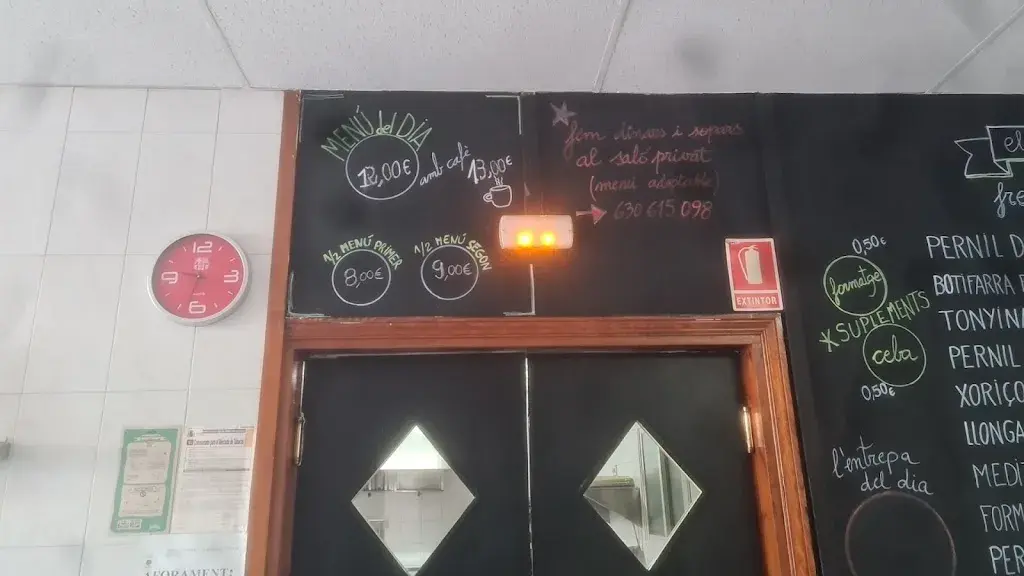 MENÚ del DIA
12,00€
amb cafè
13,00€
1/2 MENÚ PRIMER
8,00€
1/2 MENÚ SEGON
9,00€
Fem dinars i sopars
al saló privat
(menú adaptable)
630 615 098
EXTINTOR
12
9
3
6
0,50€
formatge
*SUPLEMENTS
ceba
0,50€
l'entrepà
del dia
el
fre
PERNIL D
BOTIFARRA
TONYIN
PERNIL
XORIÇO
LLONGA
MEDI
FORM
PER
AFORAMENT: